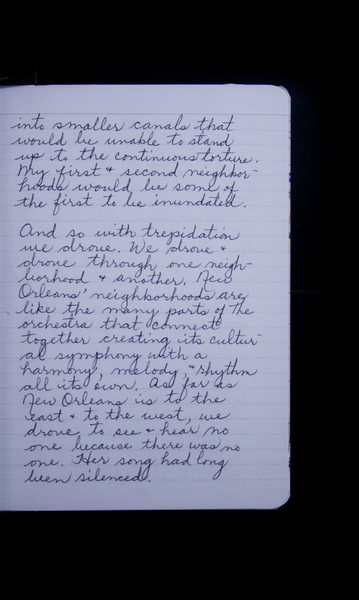 into smaller canals that
would be unable to stand
up to the continuous torture.
My first & second neighbor-
hoods would be some of
the first to be inundated.
And so with trepidation
we drove. We drove &
drove through one neigh-
borhood & another. New
Orleans' neighborhoods are
like the many parts of the
orchestra that connect
together creating its cultur-
al symphony with a
harmony, melody, & rhythm
all its own. As far as
New Orleans is to the
east & to the west, we
drove to see & hear no
one because there was no
one. Her song had long
been silenced.